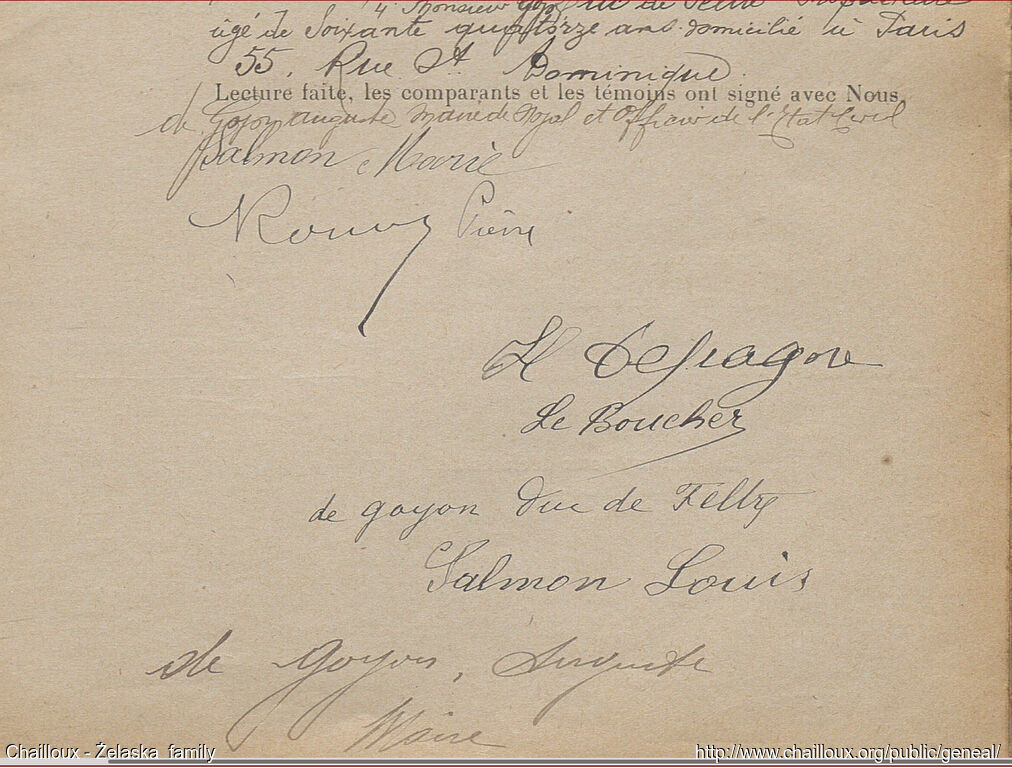 4° Monsieur duc de Feltre
âgé de Soixante quatorze ans domicilié à Paris
55, Rue St Dominique.
Lecture faite, les comparants et les témoins ont signé avec Nous,
de Goyon auguste Maire de et Officier de l'Etat Civil
Salmon Marie
Pierre
Le Boucher
de goyon Duc de Feltre
Salmon Louis
de Goyon, Auguste
Maire
Chailloux - Želaska family
http://www.chailloux.org/public/geneal/